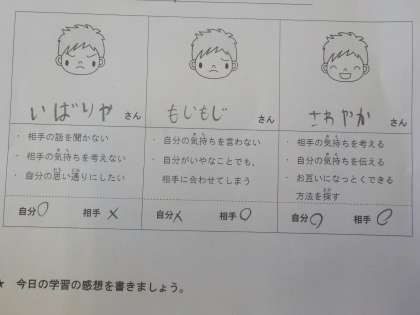 いばりや さん
・ 相手の話を聞かない
・ 相手の気持ちを考えない
・ 自分の思い通りにしたい
自分○ 相手 ×
もじもじ さん
・ 自分の気持ちを言わない
・ 自分がいやなことでも、
相手に合わせてしまう
自分× 相手 ○
さわやか さん
・ 相手の気持ちを考える
・ 自分の気持ちを伝える
・ お互いになっとくできる
方法を探す
自分○ 相手 ○
★ 今日の学習の感想を書きましょう。